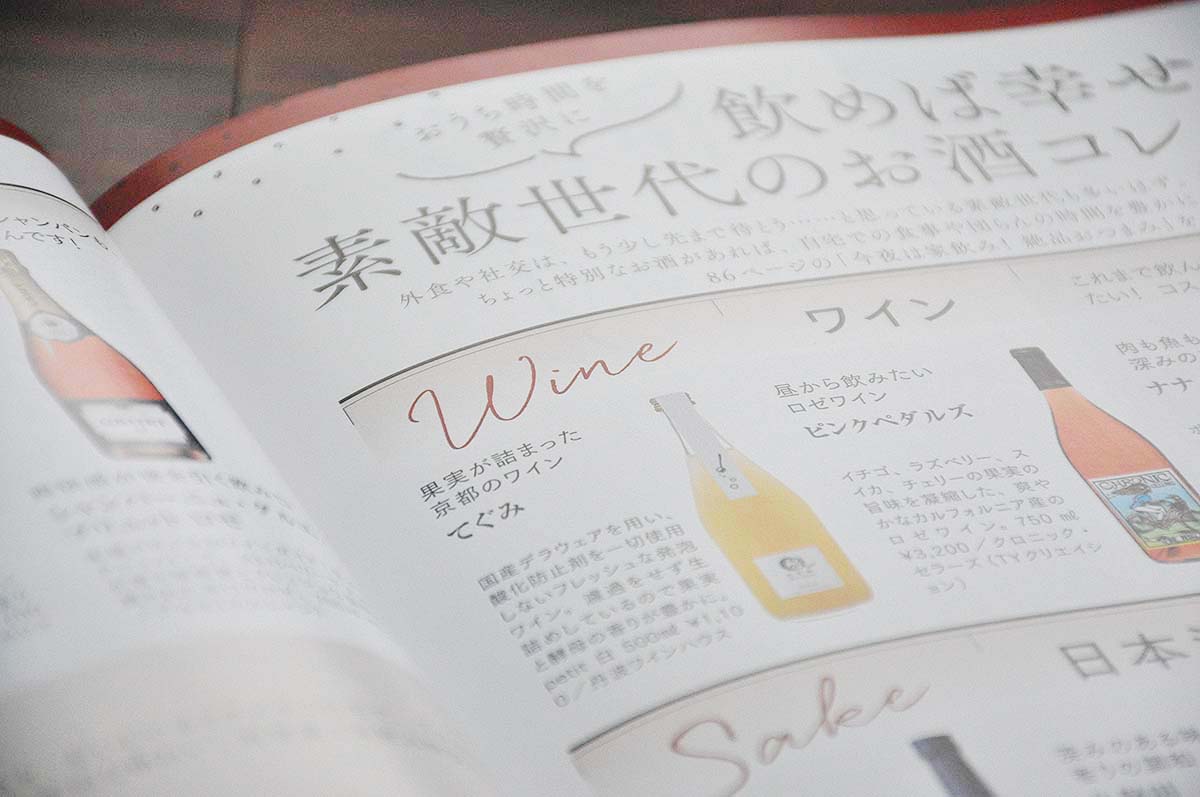 おうち時間を
贅沢に
飲めば幸せ
素敵世代のお酒コレ
外食や社交は、もう少し先まで待とう……と思っている素敵世代も多いはず。
ちょっと特別なお酒があれば、自宅での食事や団らんの時間を豊かに
86ページの「今夜は家飲み！絶品おつまみ」な
Wine
ワイン
果実が詰まった
京都のワイン
てぐみ
国産デラウェアを用い、
酸化防止剤を一切使用
しないフレッシュな発泡
ワイン。濾過をせず生
詰めしているので果実
と酵母の香りが豊かに。
petit 白 500㎖ ¥1,10
0／丹波ワインハウス
昼から飲みたい
ロゼワイン
ピンクペダルズ
イチゴ、ラズベリー、ス
イカ、チェリーの果実の
旨味を凝縮した、爽や
かなカルフォルニア産の
ロゼワイン。750 ㎖
¥3,200／クロニック・
セラーズ（TYクリエイシ
ョン）
これまで飲ん
たい！ コス
肉も魚も
深みの
ナナ
CHRONIC
Sake
日本
シャンパン
んです！